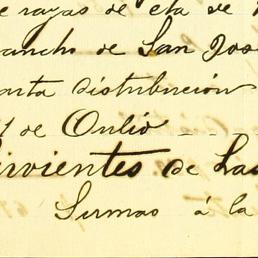 e rayas de eta de
rancho de San Jos
arta distribución
1 de Onlio
irvientes de Las
Sumas á la